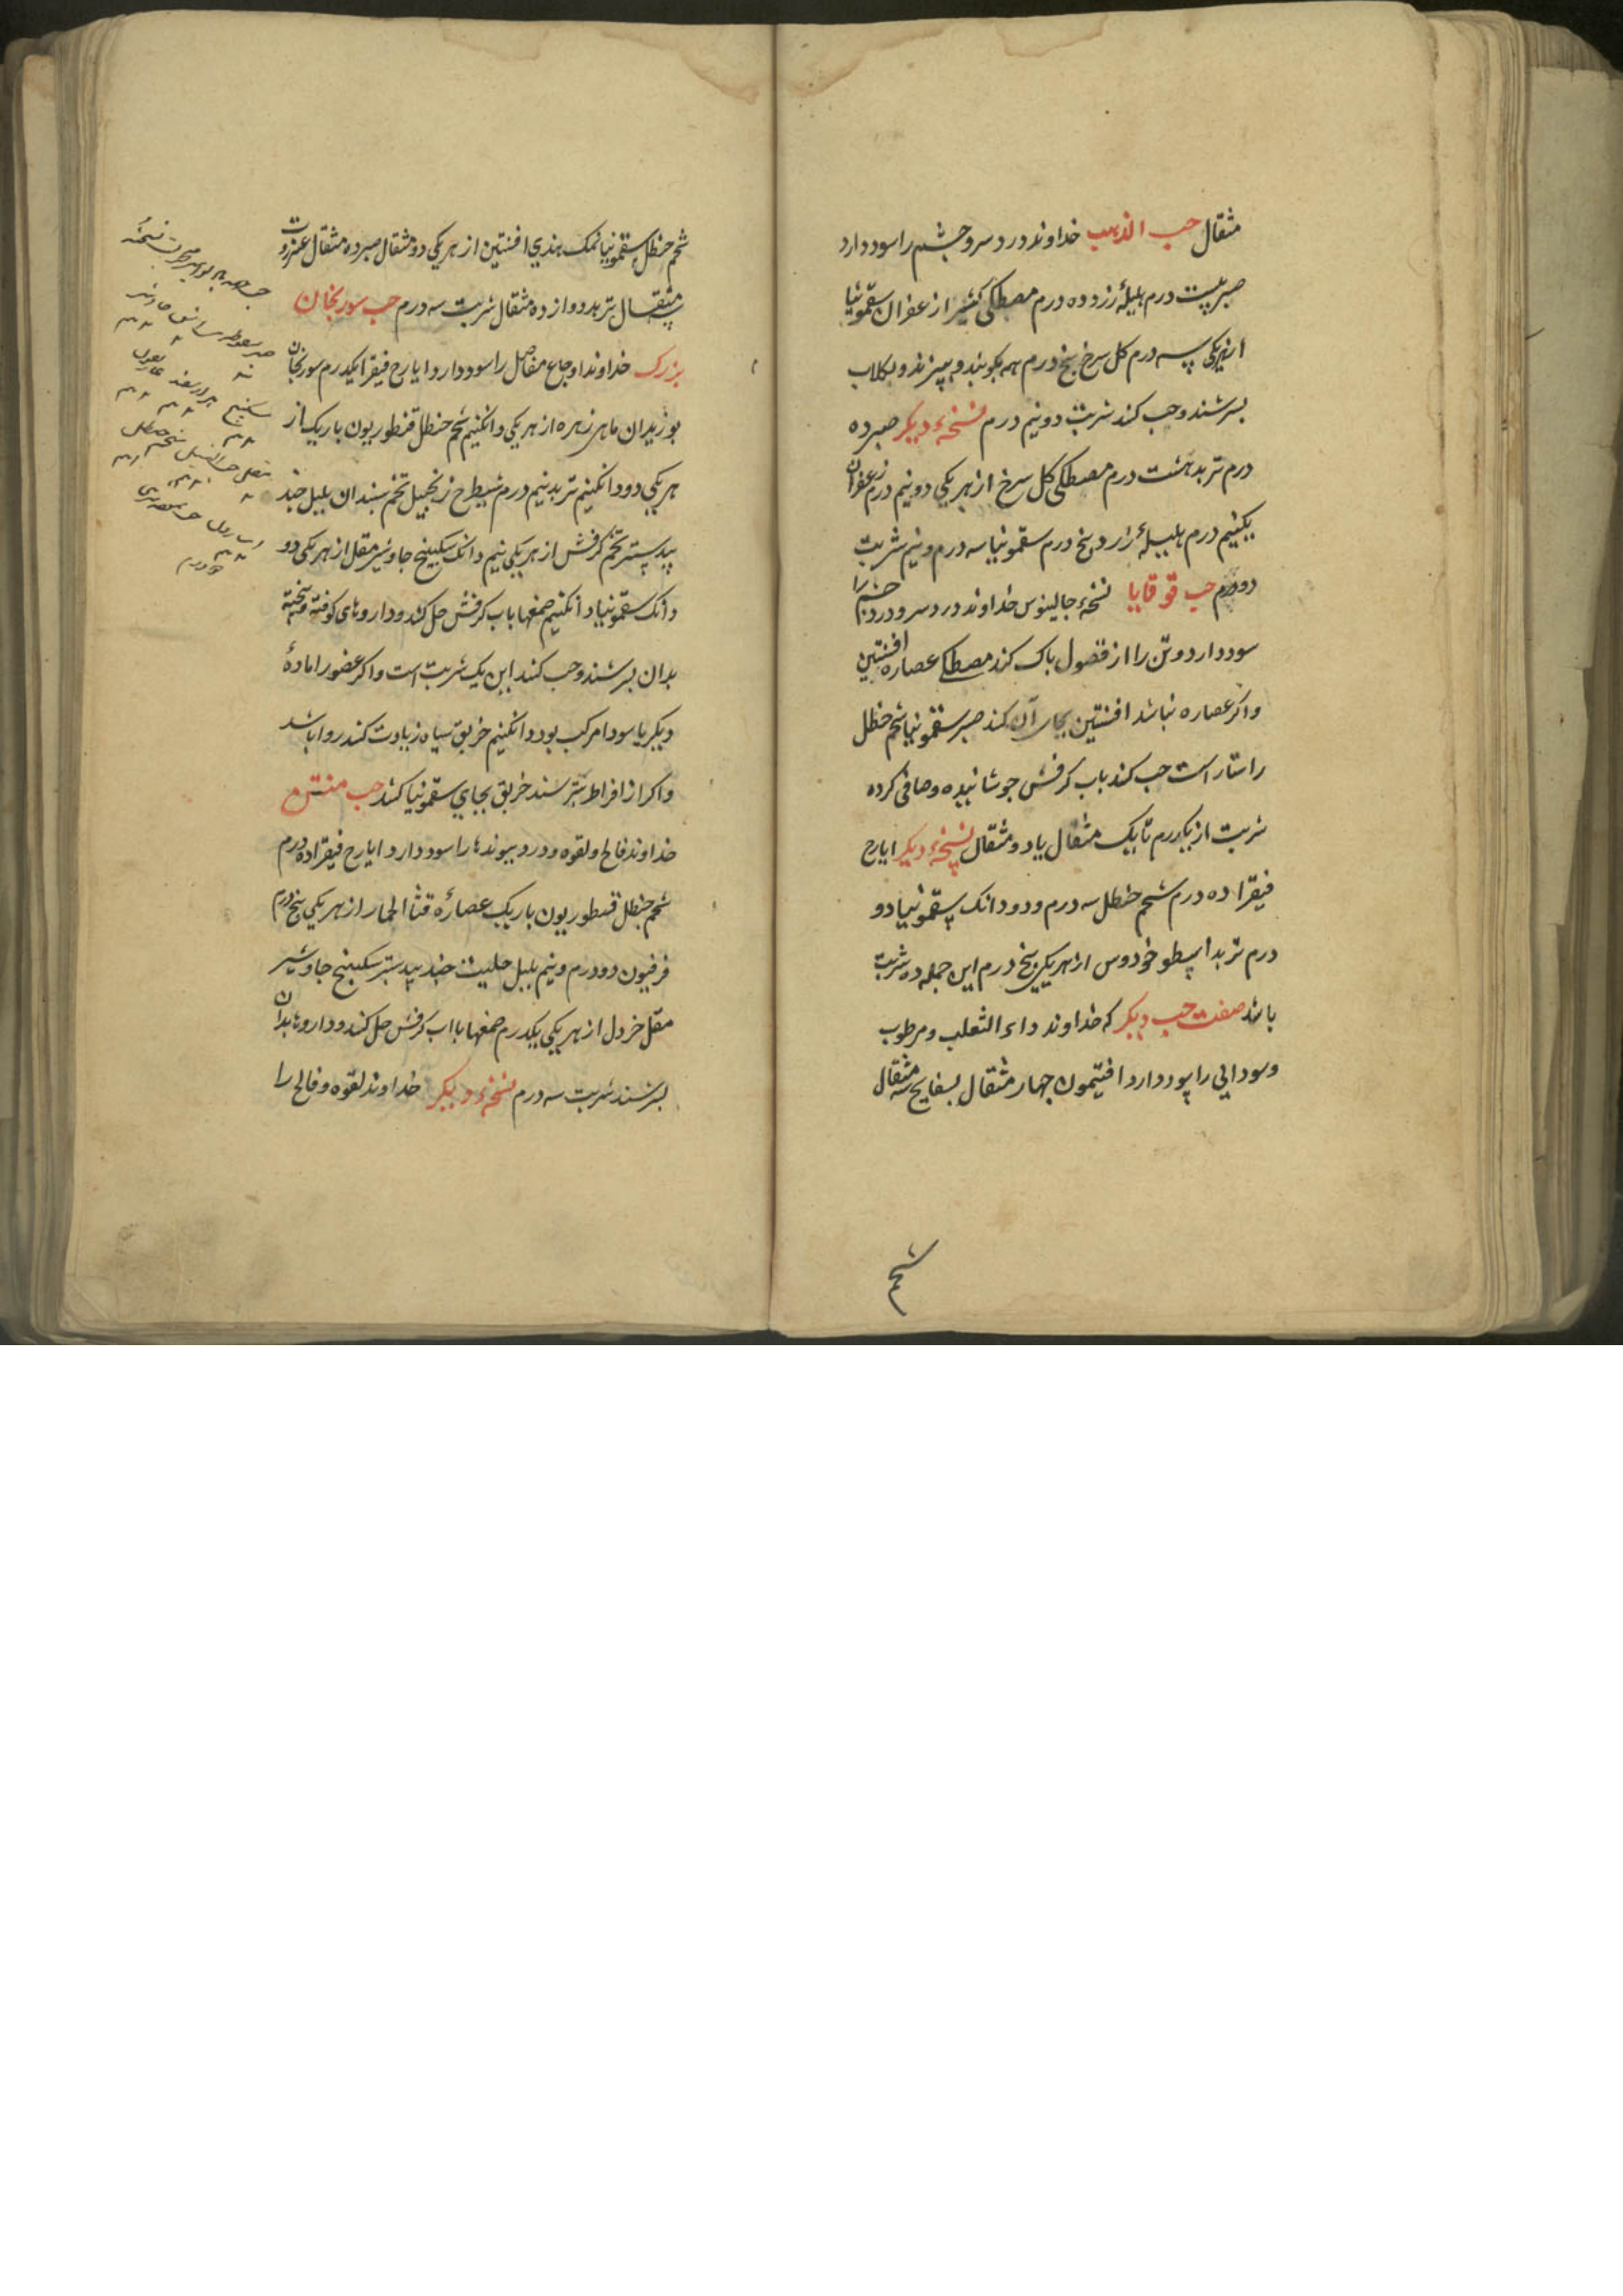 مثقال حب الذهب خداوند درد سر و چشم را سود دارد
صبر بیست درم هلیلهٔ زرد ده درم مصطکی کتیرا زعفران سقمونیا
از هر یکی سه درم کل سرخ پنج درم همه بکوبند و ببیزند و بکلاب
بسرشند و حب کنند شربت دو نیم درم نسخهٔ دیکر صبر ده
درم تربد هشت درم مصطکی کل سرخ از هر یکی دو نیم درم زعفران
یکنیم درم هلیلهٔ زرد پنج درم سقمونیا سه درم و نیم شربت
دو درم حب قوقایا نسخهٔ جالینوس خداوند درد سر و درد چشم را
سود دارد و تن را از فضول پاک کند مصطکی عصاره افسنتین
واکر عصاره نباشد افسنتین بجای آن کنند صبر سقمونیا شحم حنظل
راستا راست حب کنند باب کرفس جوشانیده و صافی کرده
شربت از یکدرم تا یک مثقال یا دو مثقال نسخهٔ دیکر ایارج
فیقرا ده درم شحم حنظل سه درم و دو دانک سقمونیا دو
درم تربد اسطوخودوس از هر یکی پنج درم این جمله ده شربت
باشد صفت حب دیکر که خداوند داء الثعلب و مرطوب
و سودایی را سود دارد افتیمون چهار مثقال بسفایج سه مثقال
شحم
شحم حنظل سقمونیا نمک هندی افسنتین از هر یکی دو مثقال صبر ده مثقال عنزروت
مثقال تربد دوازده مثقال شربت سه درم حب سورنجان
بزرک خداوند اوجاع مفاصل را سود دارد ایارج فیقرا یکدرم سورنجان
بوزیدان ماهی زهره از هر یکی دانکنیم شحم حنظل قنطوریون باریک از
هر یکی دو دانکنیم تربد نیم درم شیطرج زنجبیل تخم سپندان بلبل جند
بیدستر تخم کرفس از هر یکی نیم دانک سکبینج جاوشیر مقل از هر یکی دو
دانک سقمونیا دانکنیم صمغها باب کرفس حل کنند و داروهای کوفته و بیخته
بدان بسرشند و حب کنند این یک شربت است و اکر عضو را مادهٔ
دیکر با سودا مرکب بود دانکنیم خربق سیاه زیادت کنند روا باشد
و اکر از افراط بترسند خربق بجای سقمونیا کنند حب منتن
خداوند فالج و لقوه و درد پیوندها را سود دارد ایارج فیقرا ده درم
شحم حنظل قنطوریون باریک عصارهٔ قثا الحمار از هر یکی پنج درم
فرفیون دو درم و نیم بلبل حلیت جند بیدستر سکبینج جاوشیر
مقل خردل از هر یکی یکدرم صمغها باآب کرفس حل کنند و داروها بدان
بسرشند شربت سه درم نسخهٔ دیکر خداوند لقوه و فالج را